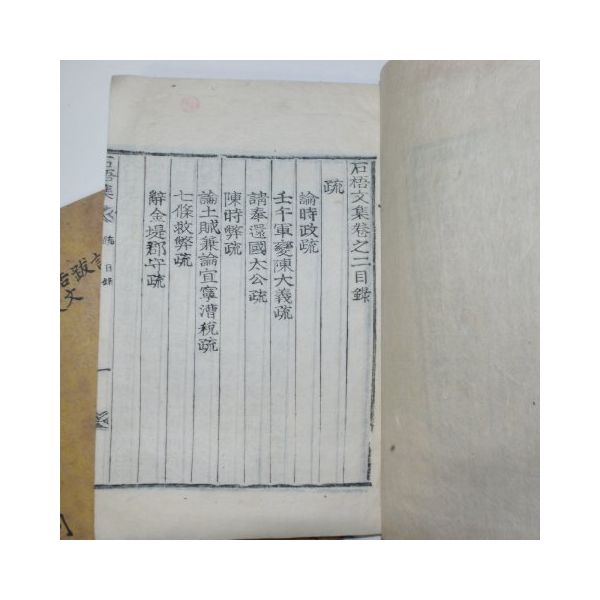 石梧文集卷之二目錄
疏
論時政疏
壬午軍變陳大義疏
請奉還國太公疏
陳時弊疏
論土賊兼論宜寧漕稅疏
七條救弊疏
辭金堤郡守疏
石梧集
疏 目錄
一
跋
文